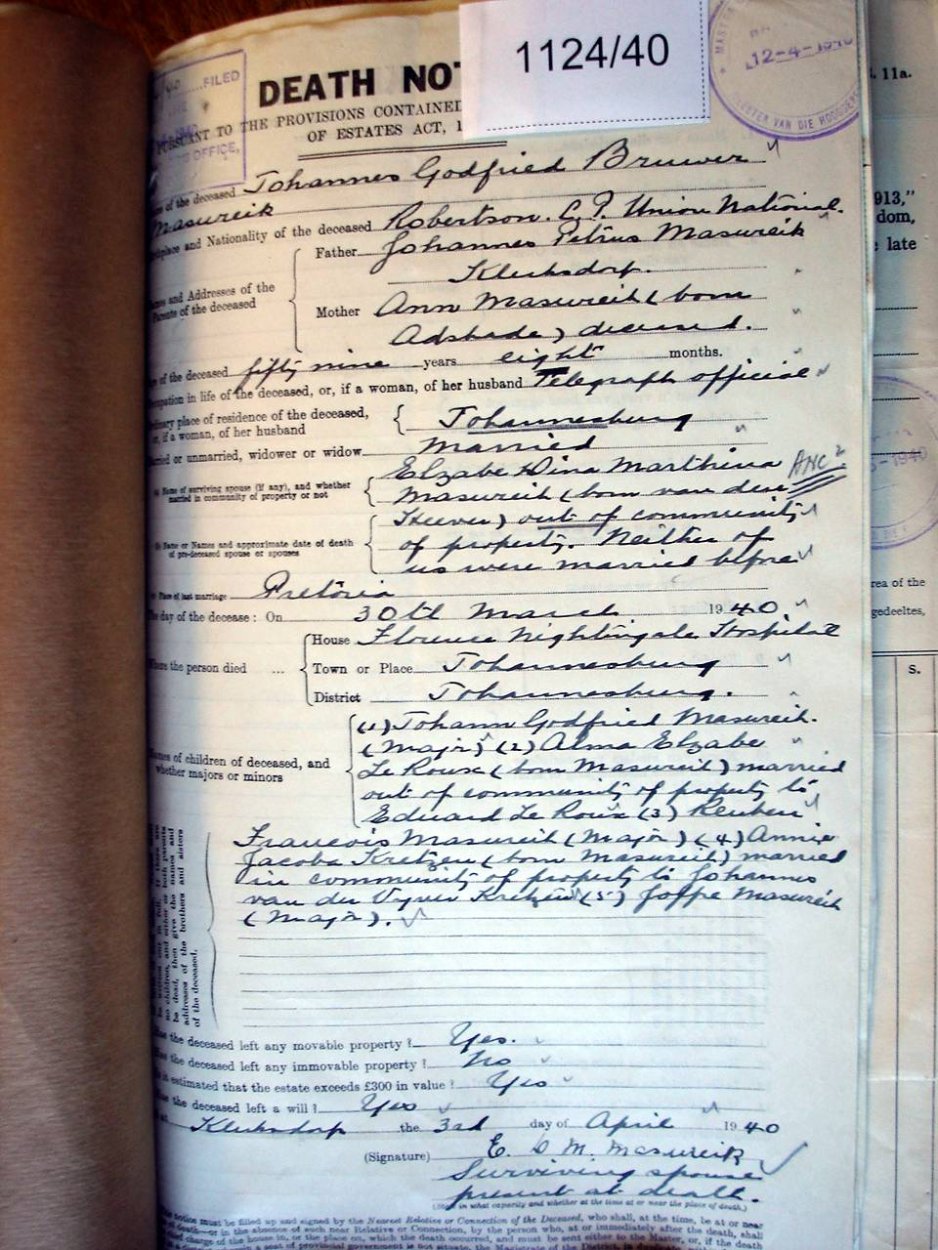 1124/40
FILED
OFFICE,
12-4-1940
MAST
VAN DIE HOOGGE
11a.
DEATH NOT
PURSUANT TO THE PROVISIONS CONTAINED
OF ESTATES ACT, 1
913,"
dom,
late
of the deceased Johannes Godfried Bruwer
Masureik
and Nationality of the deceased Robertson. C.P. Union National.
Father Johannes Petrus Masureik
Klerksdorp.
and Addresses of the
Parents of the deceased
Mother Ann Masureik (born
Adshade) deceased.
of the deceased fifty nine years eight months.
in life of the deceased, or, if a woman, of her husband Telegraph official
place of residence of the deceased,
or, if a woman, of her husband
Johannesburg
or unmarried, widower or widow Married
Name of surviving spouse (if any), and whether
married in community of property or not
Elzabe Dina Marthina ANC?
Masureik (born van der
Name or Names and approximate date of death
of pre-deceased spouse or spouses
Heever) out of community
of property. Neither of
us were married before
Place of last marriage Pretoria
day of the decease: On 30th March 1940
-1940
the person died ...
House Florence Nightingale Hospital
Town or Place Johannesburg
District Johannesburg.
rea of the
gedeeltes,
S.
Names of children of deceased, and
whether majors or minors
(1) Johann Godfried Masureik.
(Major) (2) Alma Elzabe
Le Roux (born Masureik) married
out of community of property to
Eduard Le Roux (3) Reuben
Francois Masureik (Major) (4) Annie
Jacoba Kretzen (born Masureik) married
in community of property to Johannes
van der Vyver Kretzen (5) Joffre Masureik
(Major).
no children, and either or both parents
be dead, then give the names and
addresses of the brothers and sisters
of the deceased.
the deceased left any movable property? Yes.
the deceased left any immovable property? No
estimated that the estate exceeds £300 in value? Yes
the deceased left a will? Yes
Klerksdorp the 3rd day of April 1940
(Signature) E. D. M. Masureik
Surviving spouse
present at death.
in what capacity and whether at the time at or near the place of death.)
notice must be filled up and signed by the Nearest Relative or Connection of the Deceased, who shall, at the time, be at or near
of death—or in the absence of such near Relative or Connection, by the person who, at or immediately after the death, shall
charge of the house in, or the place on, which the death occurred, and must be sent either to the Master, or, if the death